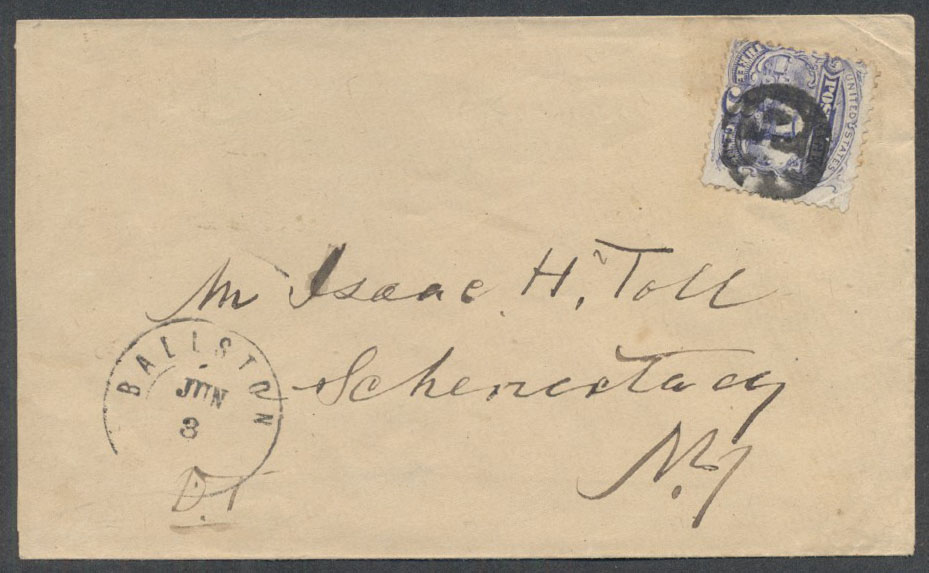 UNITED STATES
POSTAGE
Mr Isaac H. Toll
Schenectady
N.Y
BALLSTON
JUN
3